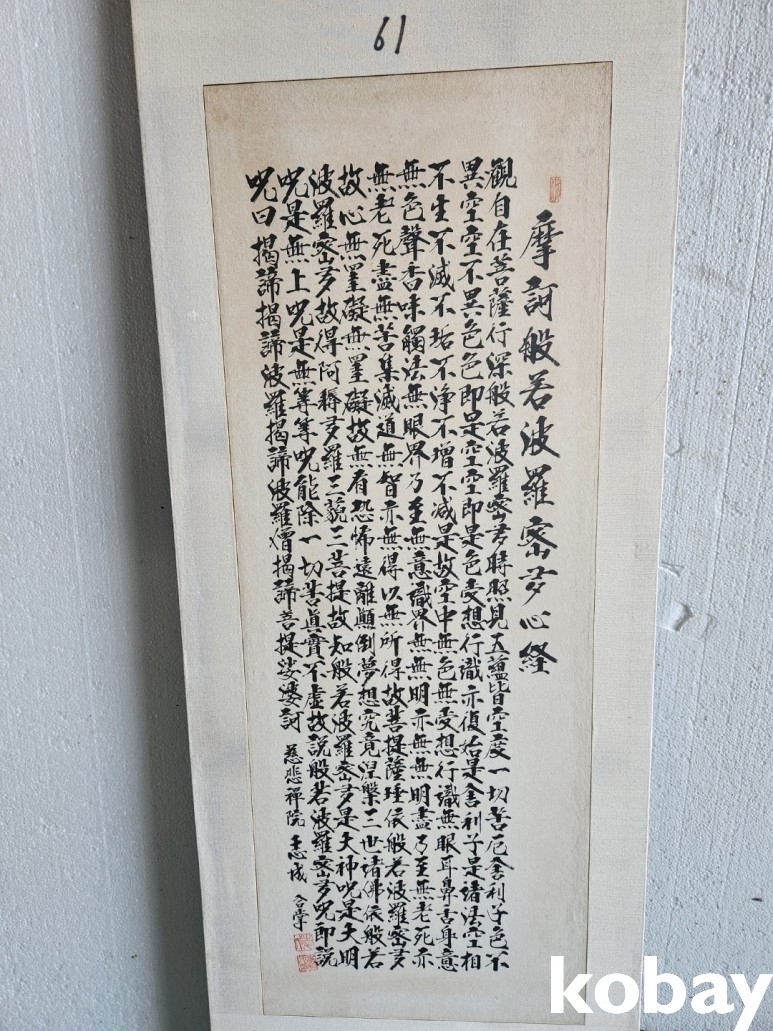 61
摩訶般若波羅蜜多心経
觀自在菩薩行深般若波羅蜜多時照見五蘊皆空度一切苦厄舍利子色不
異空空不異色色即是空空即是色受想行識亦復如是舍利子是諸法空相
不生不滅不垢不淨不增不減是故空中無色無受想行識無眼耳鼻舌身意
無色聲香味觸法無眼界乃至無意識界無無明亦無無明盡乃至無老死亦
無老死盡無苦集滅道無智亦無得以無所得故菩提薩埵依般若波羅蜜多
故心無罣礙無罣礙故無有恐怖遠離顛倒夢想究竟涅槃三世諸佛依般若
波羅蜜多故得阿耨多羅三藐三菩提故知般若波羅蜜多是大神呪是大明
呪是無上呪是無等等呪能除一切苦眞實不虛故說般若波羅蜜多呪即說
呪曰揭諦揭諦波羅揭諦波羅僧揭諦菩提娑婆訶 慈悲禪院 合掌
kobay